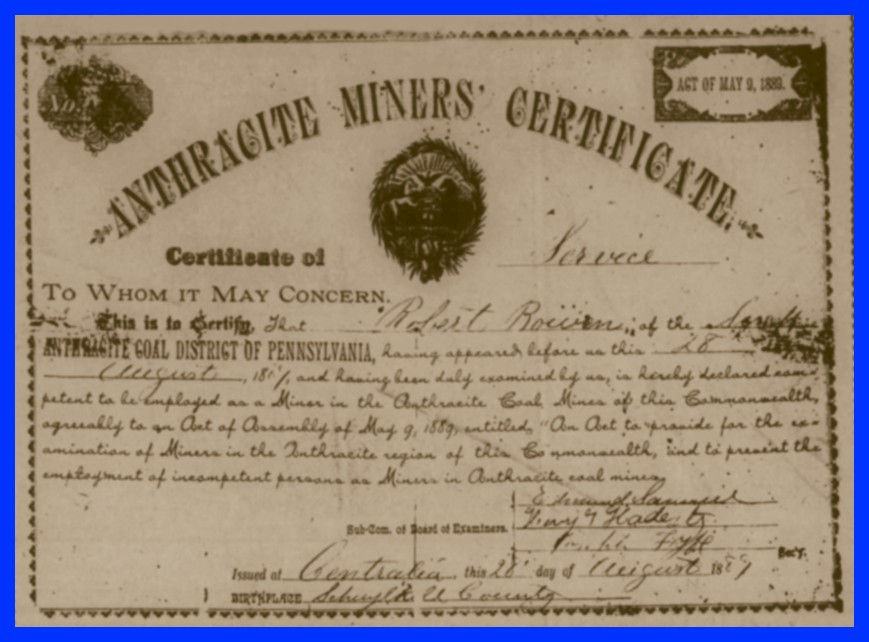 ACT OF MAY 9, 1889.
ANTHRACITE MINERS' CERTIFICATE.
Certificate of Service
TO WHOM IT MAY CONCERN.
This is to Certify, That Robert Rowen, of the
ANTHRACITE COAL DISTRICT OF PENNSYLVANIA, having appeared before us this 28
August, 18 , and having been duly examined by us, is hereby declared com-
petent to be employed as a Miner in the Anthracite Coal Mines of this Commonwealth,
agreeably to an Act of Assembly of May 9, 1889, entitled, "An Act to provide for the ex-
amination of Miners in the Anthracite region of this Commonwealth, and to prevent the
employment of incompetent persons as Miners in Anthracite coal mines
Edmund
Sub-Com. of Board of Examiners.
Sec'y.
Issued at Centralia this 28 day of August 18
BIRTHPLACE Schuylkill County